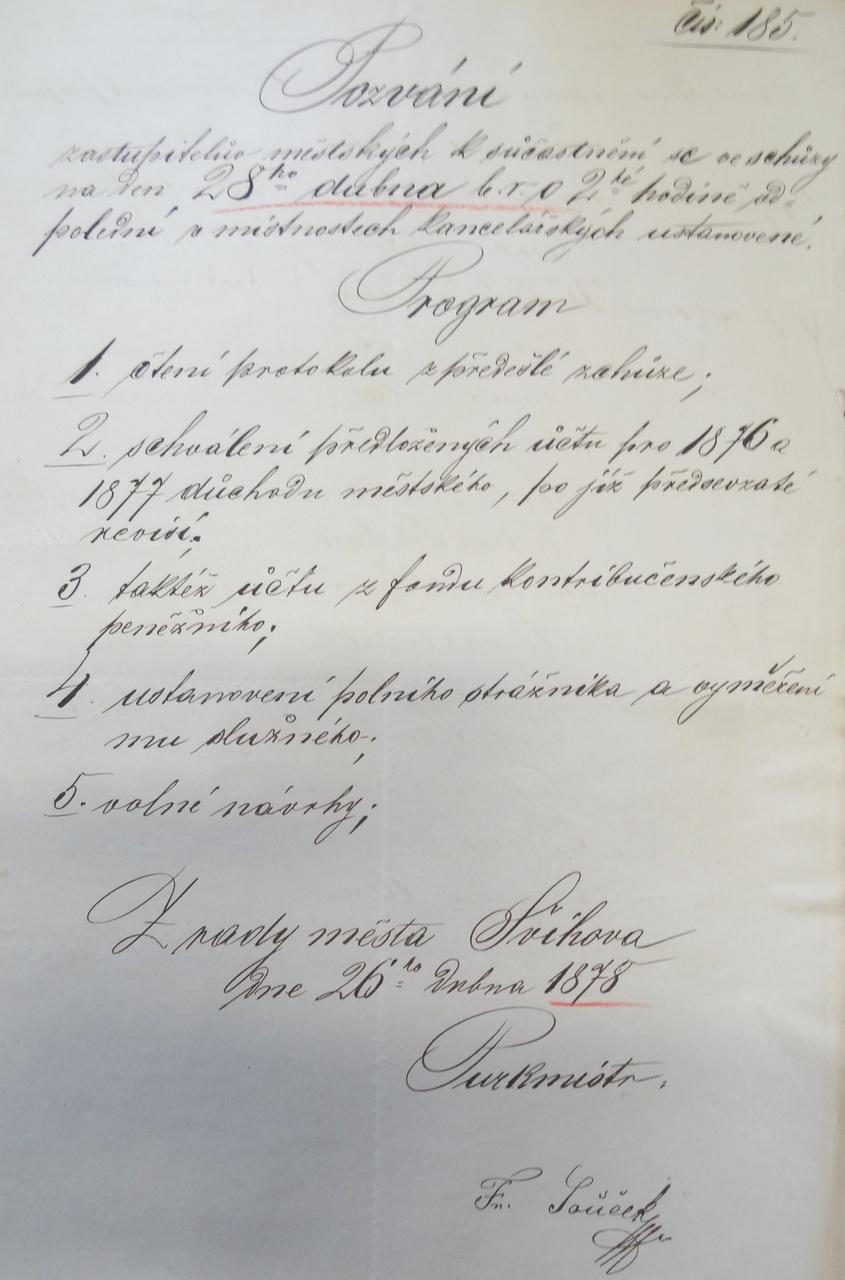 čís: 185.
Pozvání
zastupitelův městských k súčastnění se ve schůzy
na den 28ho dubna b. r. o 2hé hodině od-
polední, v místnostech kancelářských ustanovené.
Program
1. čtení protokolu z předešlé zchůze;
2. schválení předložených účtu pro 1876 a
1877 důchodu městského, po již předsevzaté
revisí;
3. taktéž účtu z fondu kontribučenského
peněžního;
4. ustanovení polního strážníka a vyměření
mu služného;
5. volné návrhy;
Z rady města Švihova
dne 26ho dubna 1878
Purkmistr.
Fr. Souček